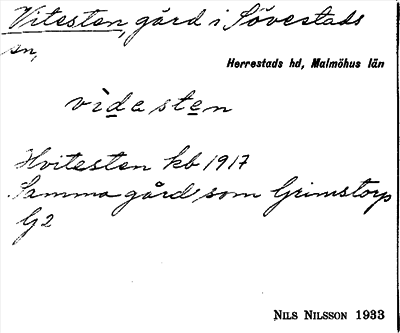 Vitesten, gård i Sövestads
sn,
Herrestads hd, Malmöhus län
vìdesten
Hvitesten kb 1917
Samma gård som Grimstorp
G2
NILS NILSSON 1933